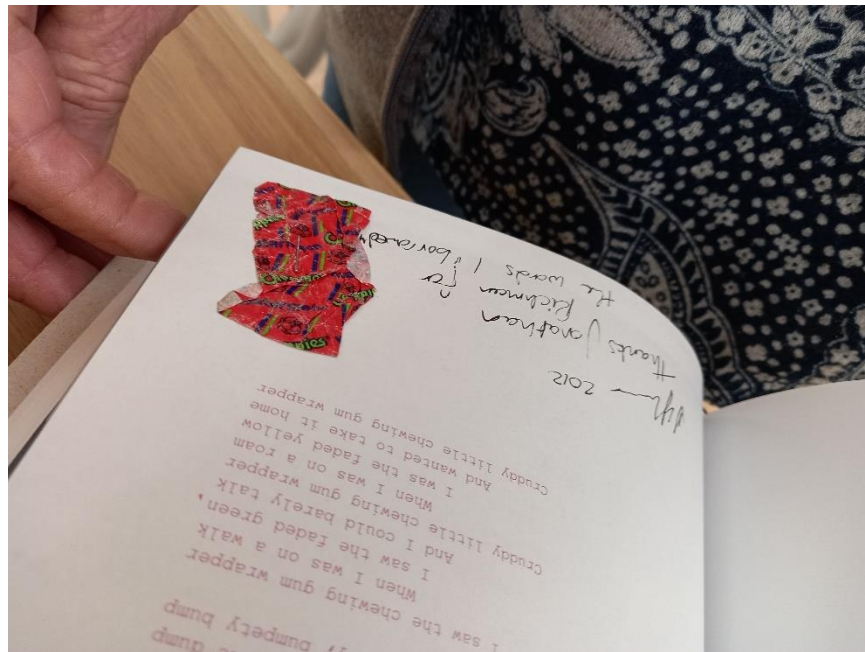 dump
bumpety bump
I saw the chewing gum wrapper
When I was on a walk
I saw the faded green,
And I could barely talk
Cruddy little chewing gum wrapper
When I was on a roam
I saw the faded yellow
And wanted to take it home
Cruddy little chewing gum wrapper
2012
thanks Jonathan Richman for
the words I "borrowed"